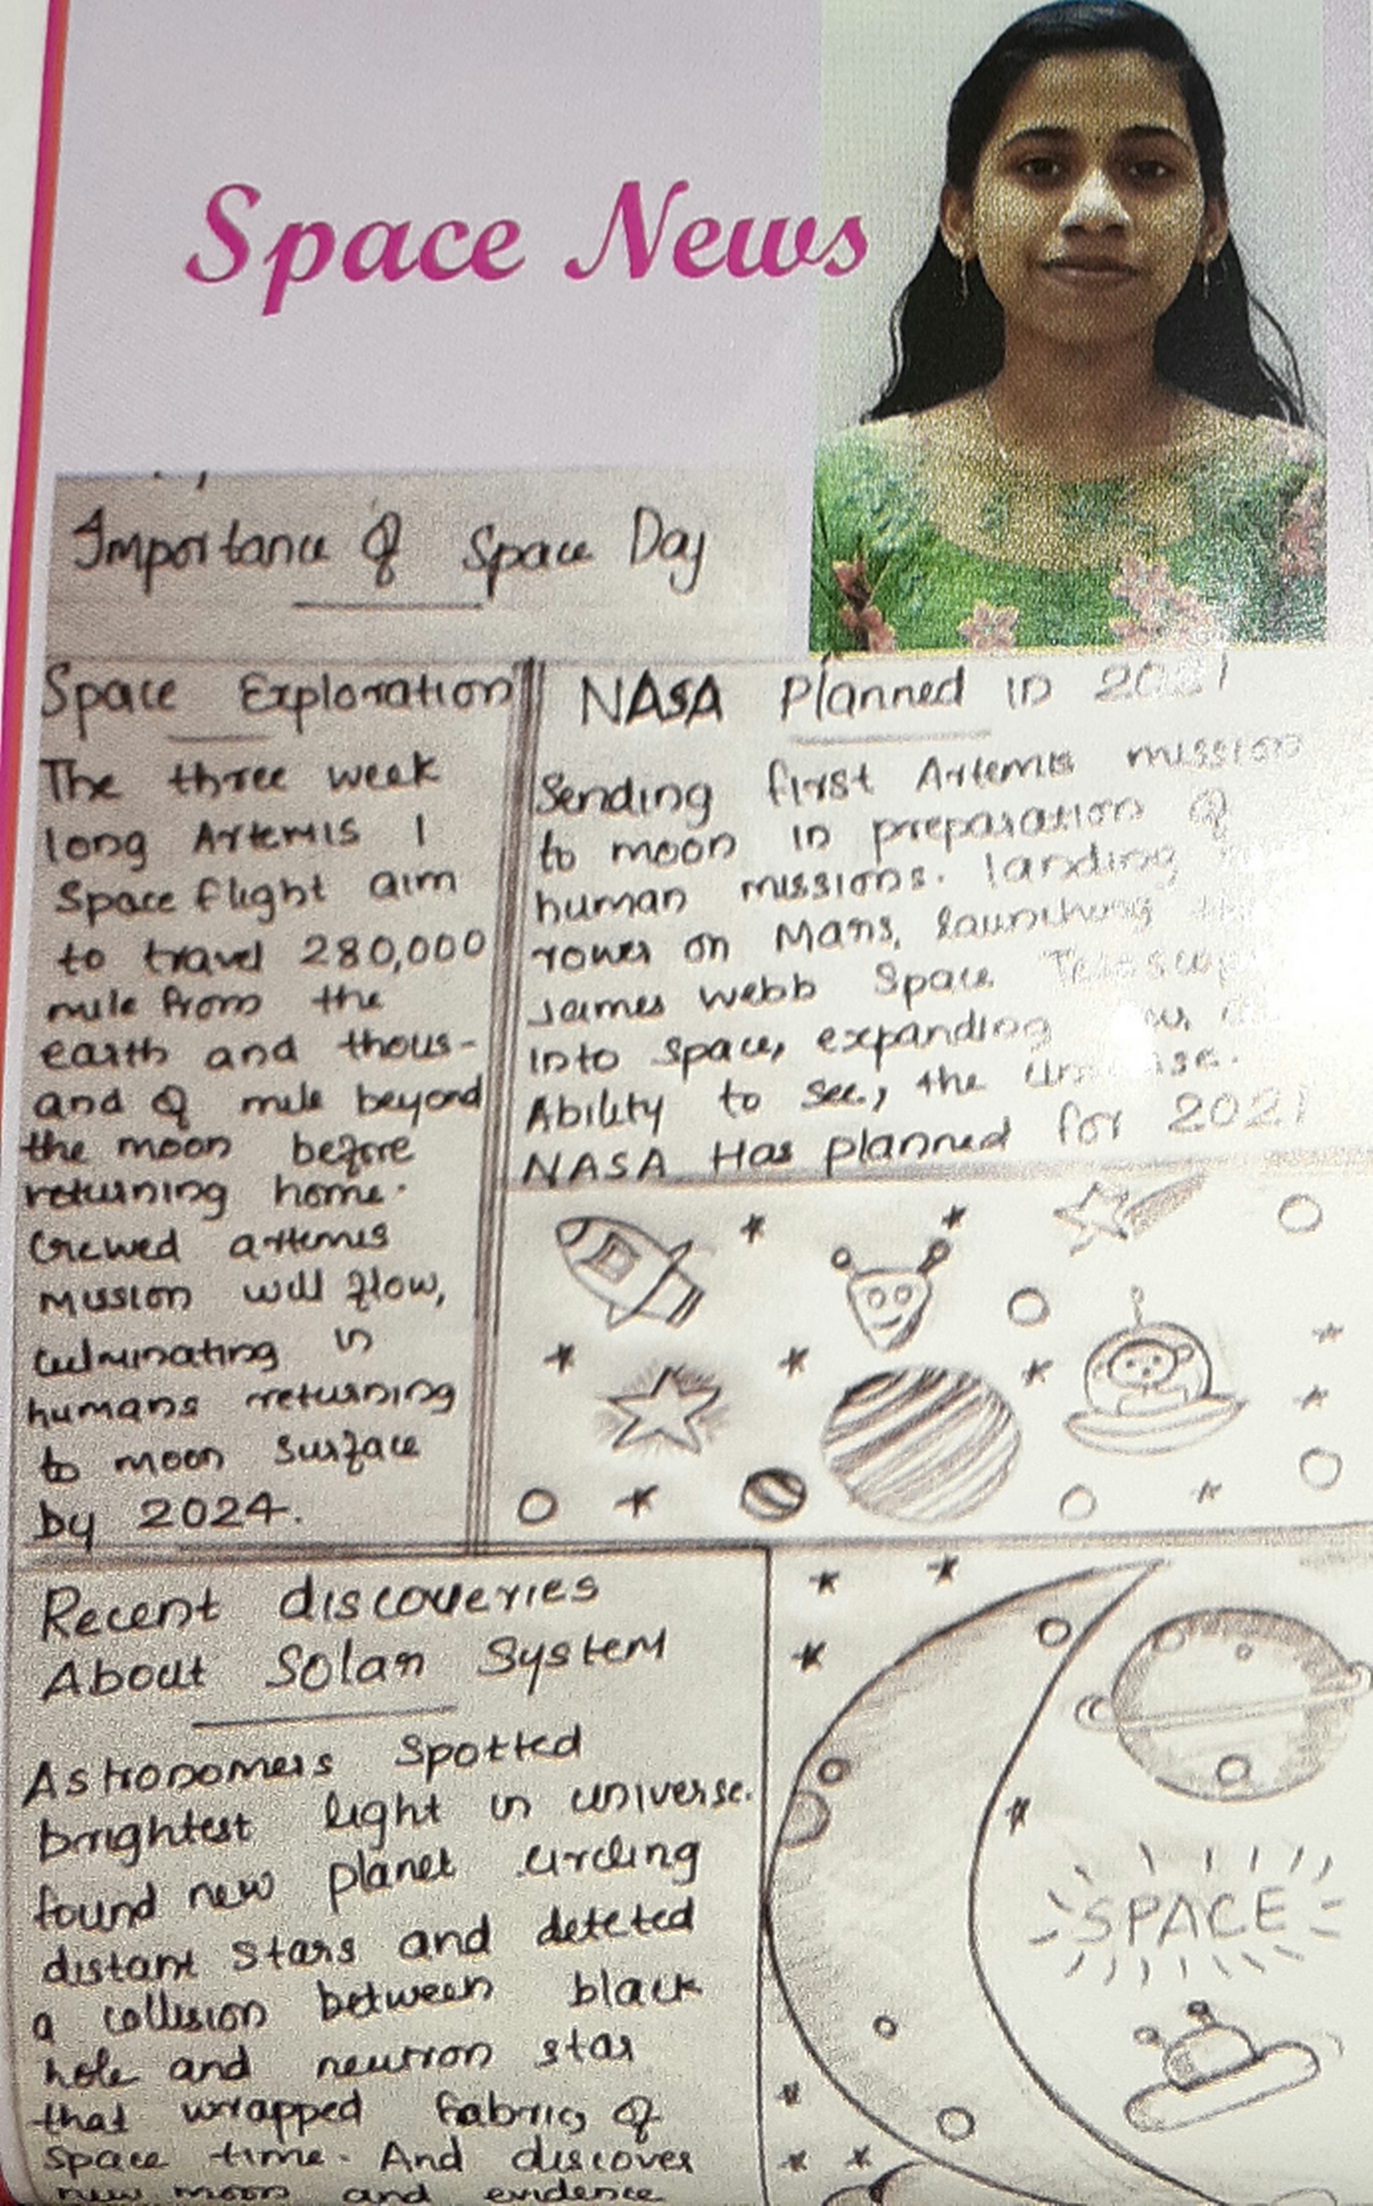 Space News
Importance of Space Day
Space Exploration
The three week
long Artemis 1
Space flight aim
to travel 280,000
mile from the
earth and thous-
and of mile beyond
the moon before
returning home.
Crewed artemis
mission will flow,
culminating in
humans returning
to moon surface
by 2024.
NASA Planned in 2021
Sending first Artemis mission
to moon in preparation of
human missions. landing
rover on Mars, launching the
James Webb Space Telescope
into space, expanding our
Ability to see, the Universe.
NASA Has planned for 2021
Recent discoveries
About Solar System
Astronomers Spotted
brightest light in universe.
found new planet circling
distant stars and deteted
a collision between black
hole and neutron star
that wrapped fabric of
space time. And discover
new moon and evidence
SPACE